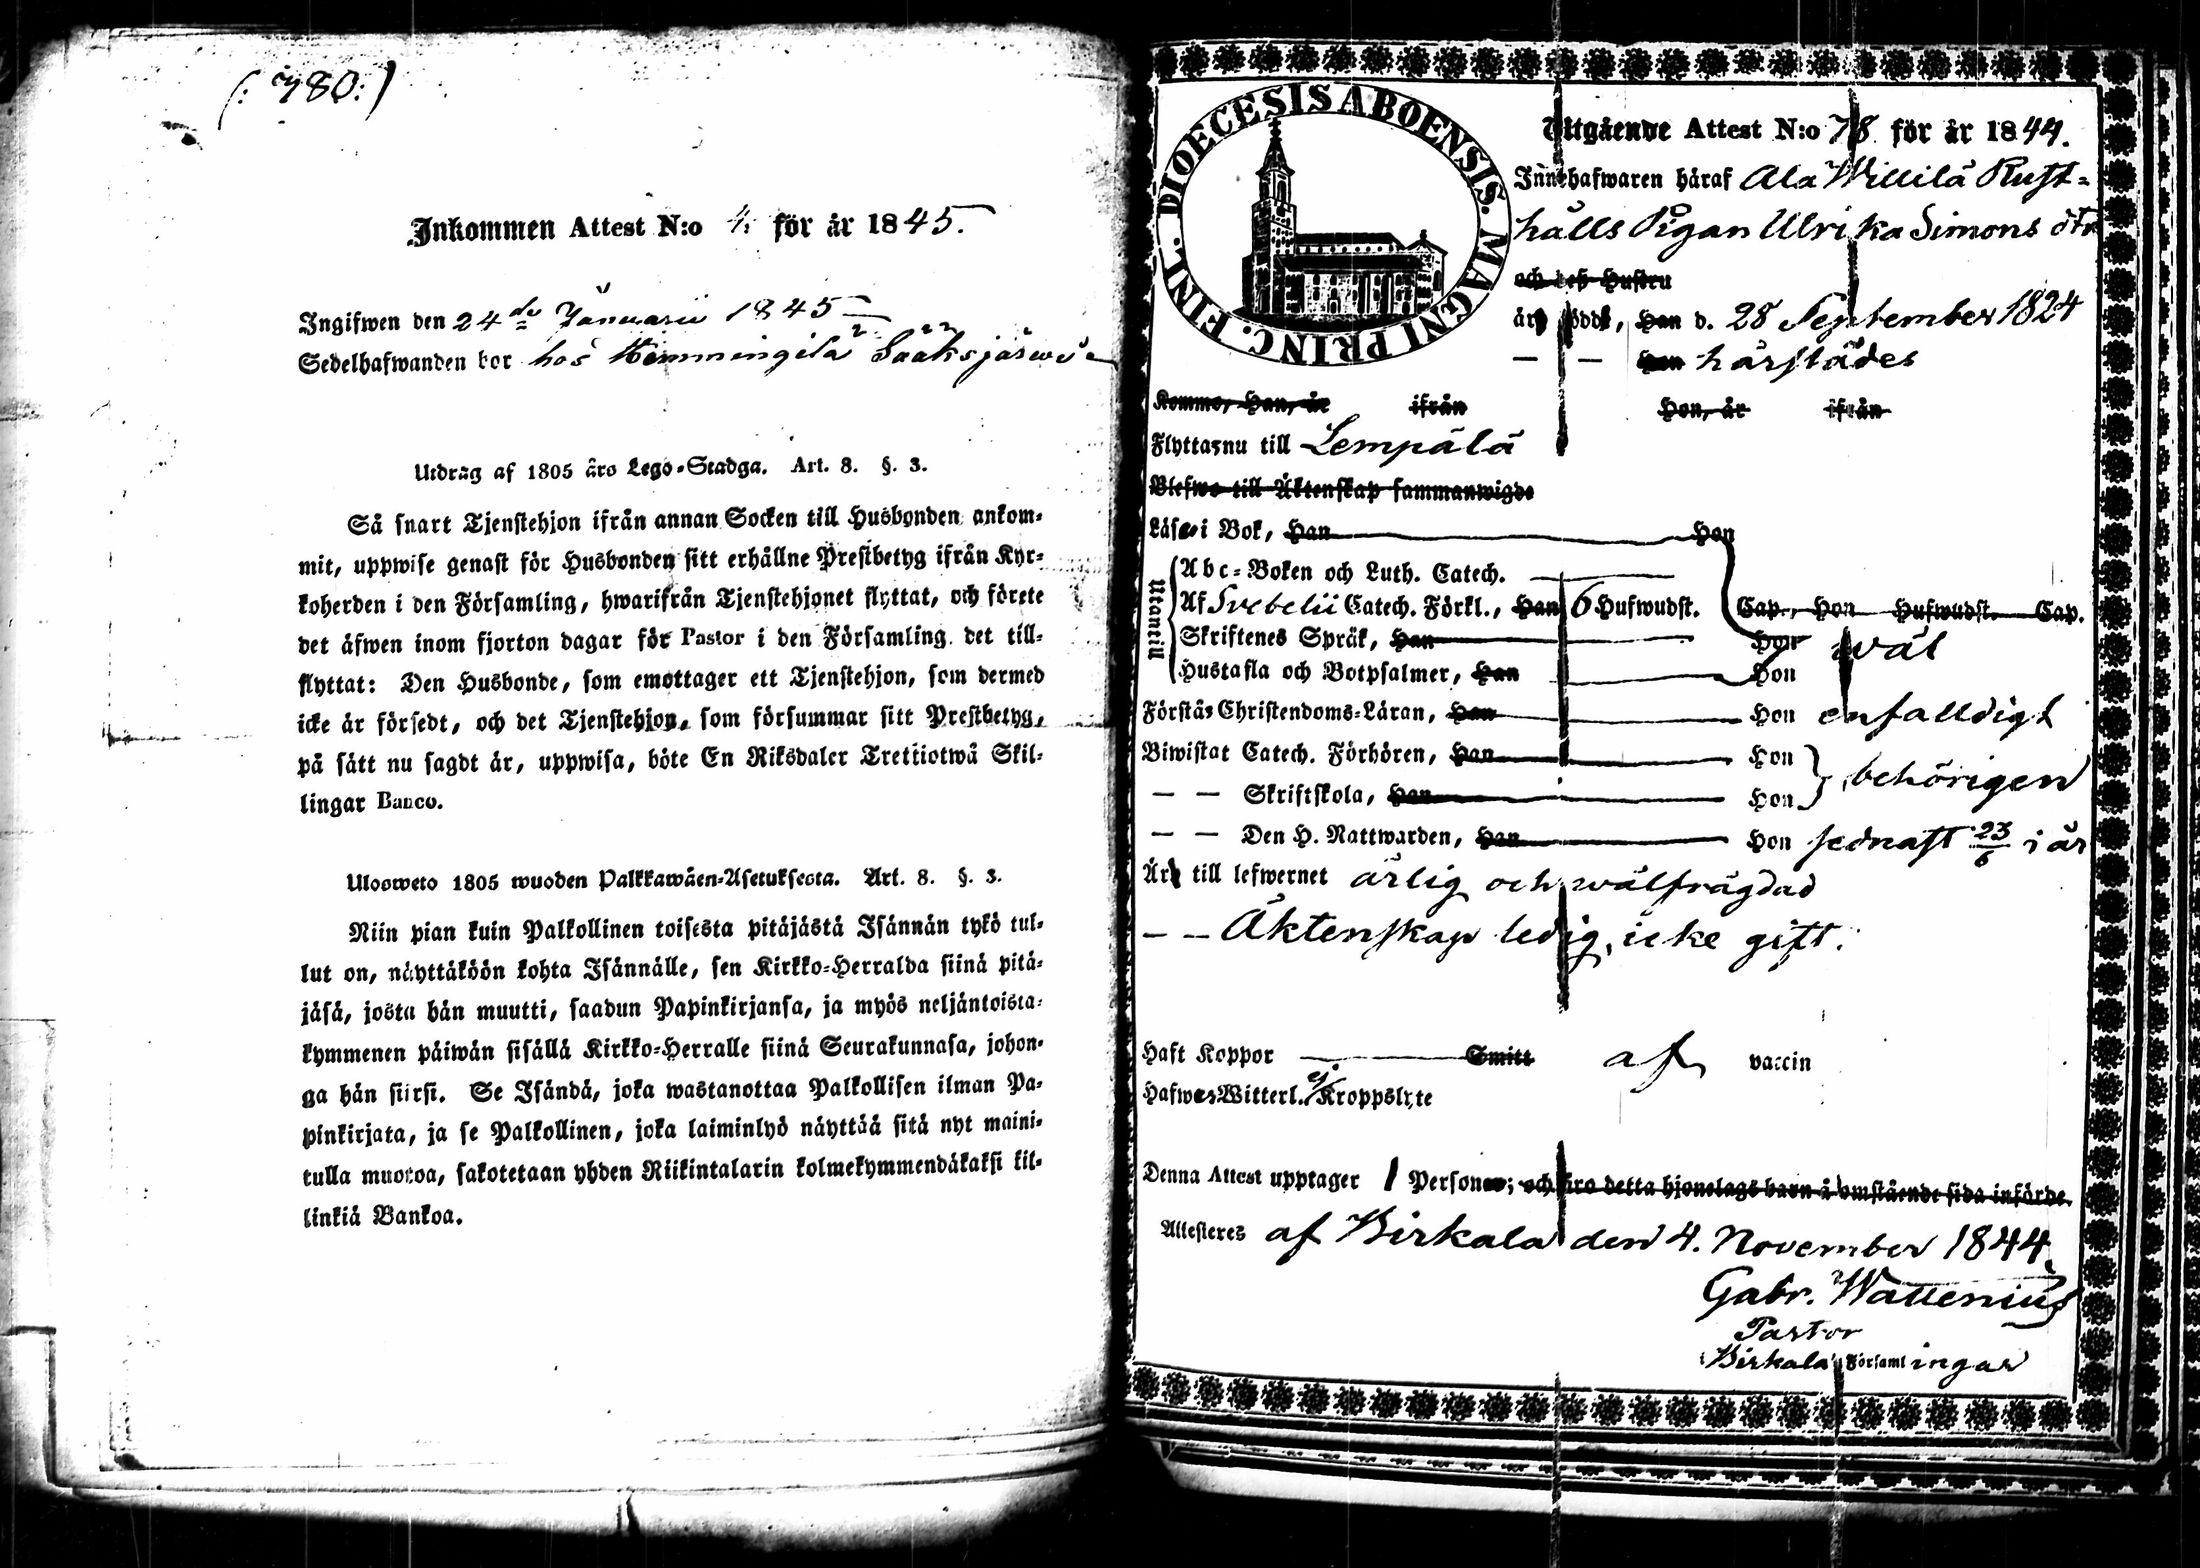 (: 780 :)
Inkommen Attest N:o 4. för år 1845.
Ingifwen den 24de Januarii 1845
Sedelhafwanden bor hos Hemmingilä Sääksjärwi
Utdrag af 1805 åro Lego-Stadga. Art. 8. §. 3.
Så snart Tjenstehjon ifrån annan Socken till Husbonden ankom-
mit, uppwise genast för Husbonden sitt erhållne Prestbetyg ifrån Kyr-
koherden i den Församling, hwarifrån Tjenstehjonet flyttat, och förete
det äfwen inom fjorton dagar för Pastor i den Församling det till-
flyttat: Den Husbonde, som emottager ett Tjenstehjon, som dermed
icke är försedt, och det Tjenstehjon, som försummar sitt Prestbetyg,
på sätt nu sagdt är, uppwisa, böte En Riksdaler Trettiotwå Skil-
lingar Banco.
Uloosweto 1805 wuoden Palkkawäen-Asetuksesta. Art. 8. §. 3.
Niin pian kuin Palkollinen toisesta pitäjästä Isännän tykö tul-
lut on, näyttäköön kohta Isännälle, sen Kirkko-Herralda siinä pitä-
jäsä, josta hän muutti, saadun Papinkirjansa, ja myös neljäntoista-
kymmenen päiwän sisällä Kirkko-Herralle siinä Seurakunnasa, johon-
ga hän siirsi. Se Isändä, joka wastanottaa Palkollisen ilman Pa-
pinkirjata, ja se Palkollinen, joka laiminlyö näyttää sitä nyt maini-
tulla muotoa, sakotetaan yhden Riikintalarin kolmekymmendäkaksi kil-
linkiä Bankoa.
FINL. DIOECESIS ABOENSIS. MAGNI PRINC.
Utgående Attest N:o 78 för år 1844.
Innehafwaren häraf Ala Willilä Rust-
hålls Pigan Ulrika Simons dtr
och dess Hustru
är född, Han d. 28 September 1824
— — Hon härstädes
Kommo, Han, år ifrån Hon, år ifrån
Flyttar nu till Lempälä
Blefwo till Äktenskap sammanwigde
Läser i Bok, Han Hon
Utanetill
Abc-Boken och Luth. Catech.
Af Svebelii Catech. Förkl., Han 6 Hufwudst. Cap., Hon Hufwudst. Cap.
Skriftenes Språk, Han Hon wäl
Hustafla och Botpsalmer, Han Hon
Förstår Christendoms-Läran, Han Hon enfalldigt
Biwistat Catech. Förhören, Han Hon
— — Skriftskola, Han Hon behörigen
— — Den H. Nattwarden, Han Hon sednast 23/6 i år
Är till lefwernet ärlig och wälfrägdad
— — Äktenskap ledig, icke gift.
Haft Koppor Smitt af vaccin
Hafwer Witterl. ej Kroppslyte
Denna Attest upptager 1 Personer; och äro detta hjonelags barn å omstående sida införde.
Attesteres af Birkala den 4. November 1844.
Gabr. Wallenius
Pastor
Birkala Församlingar